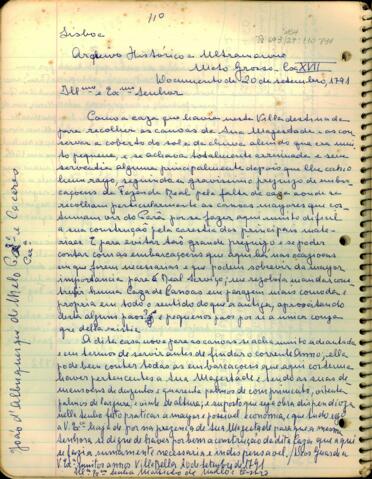 110
Lisboa
Arquivo Histórico Ultramarino
Mato Grosso Cx XVII
Documento de 20 de setembro, 1791
Ill^mo e Ex^mo Senhor
Como a caza que havia nesta Villa destinada
para recolher as canoas de Sua Magestade e as con
servar a coberto do sol e da chuva alem de que era mui
to pequena, e se achava totalmente arruinada e sem
serventia alguma principalmente depois que lhe cahio
hum raio, seguindo-se gravissimo prejuizo as embar
cações da Fazenda Real pela falta de caza aonde se
recolham particularmente as canoas mayores que cos
tumam vir do Pará por se fazer aqui muito dificil
a sua construção pela carestia dos principais mate
riaes. E para evitar tão grande prejuizo e se poder
contar com as embarcações que aqui há nas ocazioens
em que forem necessarias e que podem sobrevir da mayor
importancia para o Real Serviço, me rezolvi a mandar cons
truir huma Caza de Canoas em paragem mais comoda, e
propria em todo o sentido do que a antiga, aproveitando
desta alguns paos e pequenos paos por ser a unica couza
que della existia.
A dita casa nova para as canoas se acha muito adiantada
e em termos de servir antes de findar o corrente Anno; e ella
pode bem conter todas as embarcações que aqui costuma
haver pertencentes a Sua Magestade e tendo as suas di
mensoens de duzentos e quarenta palmos de comprimento, oitenta
palmos de largura e vinte de altura; e suposto seja obra dispendioza
nella tenho feito praticar a mayor e possivel economia, o que tudo rogo
a V. Ex^cia haja de por na prezença de Sua Magestade para que a mesma
Senhora se digne de haver por bem a construção da dita caza que aqui
se fazia summamente necessaria e indispensavel. Deos Guarde a
V. Ex^a muitos annos Villa Bella 20 de setembro de 1791
Ill^mo Ex^mo Senhor Martinho de Mello e Castro
João d'Albuquerque de Mello Pereira e Caceres